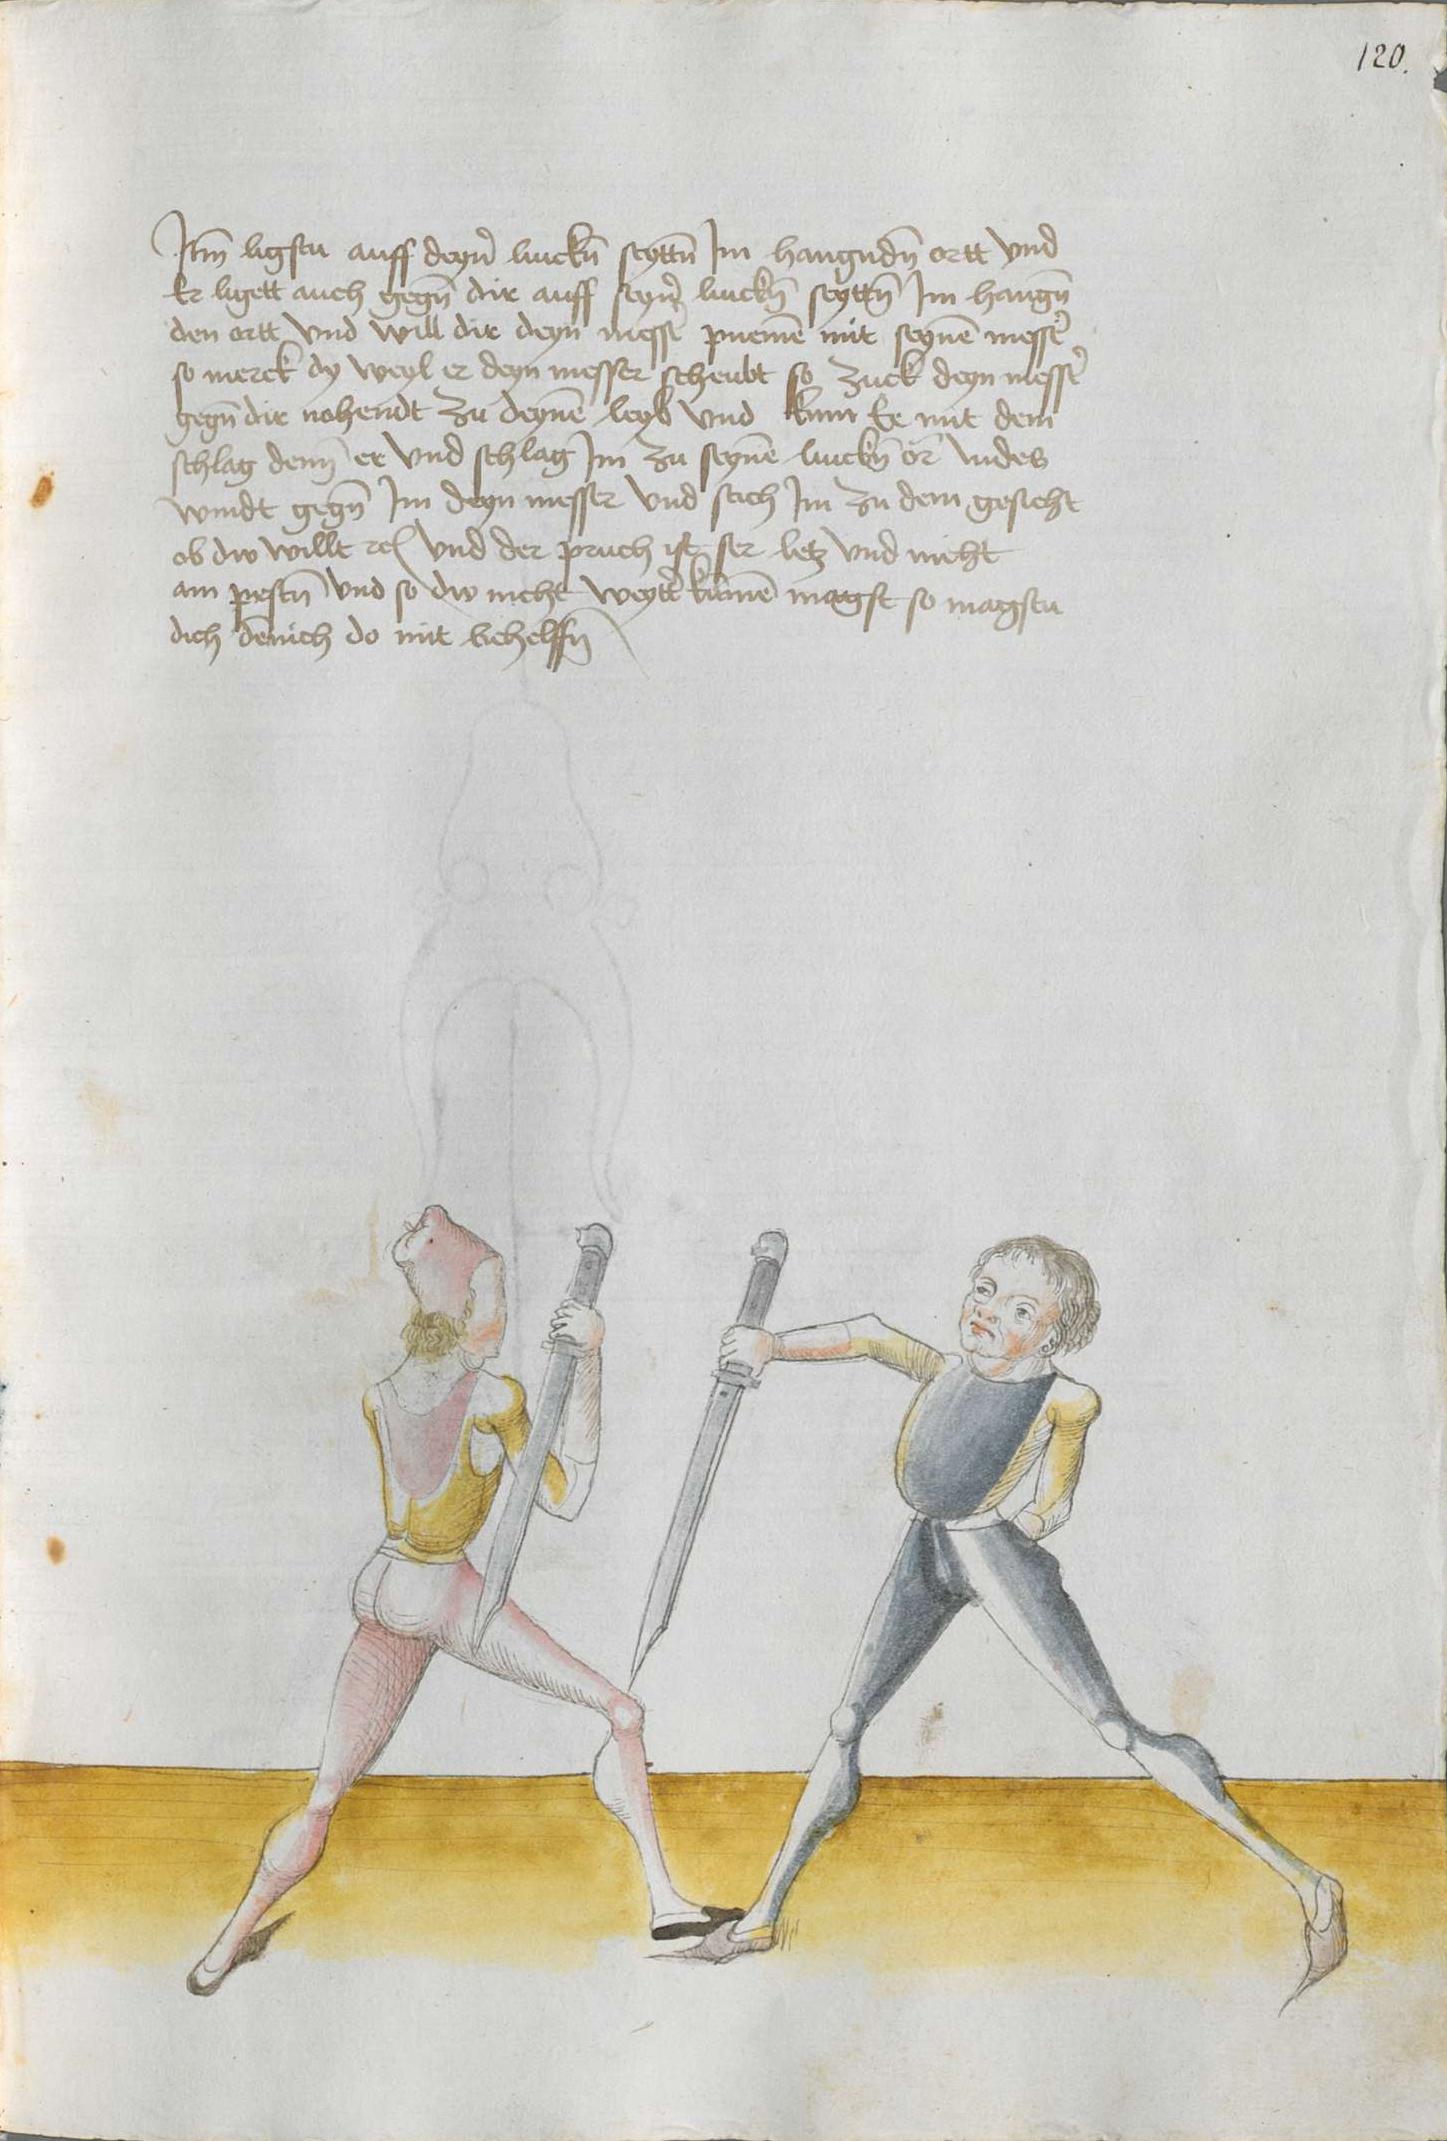 120.
Itm̄ ligstu auff deyn̄ linckn̄ seyttn̄ Im hangndn̄ ortt Vnd
Er ligett auch gegn̄ dir auff seyn̄ linckn̄ seyttn̄ Im hangn̄
den ortt Vnd will dir deyn messr̄ nemē mit seynē messr̄
so merck dy weyl er deyn messer scheubt so Zuck deyn messr̄
gegn̄ dir nohendt Zu deynē leyb Vnd kum Ee mit dem
schlag denn̄ er Vnd schlag Im Zu seynē linckn̄ or̄ Indes
windt gegn̄ Im deyn messer Vnd stich Im Zu dem gesicht
ob dw willt rc Vnd der pruch ist ser letz Vnd nicht
am pestn̄ Vnd so dw nicht weyttr̄ kumē magst so magstu
dich dēnich do mit behelffn̄